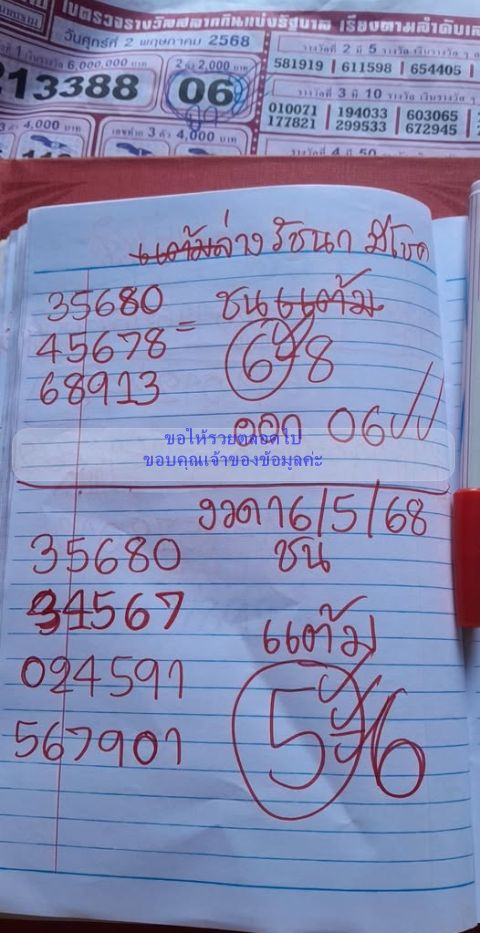 ใบตรวจรางวัลสลากกินแบ่งรัฐบาล เรียงตามลำดับเล
วันศุกร์ที่ 2 พฤษภาคม 2568
6,000,000 บาท
213388
2 ตัว 2,000 บาท
06
รางวัลที่ 2 มี 5 รางวัล
581919 | 611598 | 654405
รางวัลที่ 3 มี 10 รางวัล
010071 | 194033 | 603065
177821 | 299533 | 672945
รางวัลที่ 4 มี 50
4,000 บาท
เลขท้าย 3 ตัว 4,000 บาท
แต้มล่าง รัชนก มีโชค
35680
45678 =
68913
ชนแต้ม
6 8
ออก 06
ขอให้รวยตลอดไป
ขอบคุณเจ้าของข้อมูลค่ะ
งวด 16/5/68
35680
34567
024591
567901
ชน
แต้ม
5 6